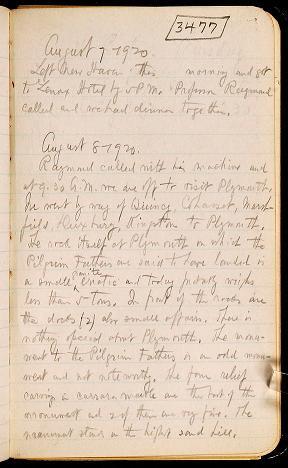 3477
August 7-1920.
Left New Haven this morning and got
to Lenox Hotel by 5 P.M. Professor Raymond
called and we had dinner together.
August 8-1920.
Raymond called with his machine and
at 9.30 A.M. we are off to visit Plymouth.
We went by way of Quincy, Cohasset, Marsh-
field, Duxbury, Kingston to Plymouth.
The rock itself at Plymouth on which the
Pilgrim Fathers are said to have landed is
a small granite erratic and today probably weighs
less than 5 tons. In front of the rocks are
the docks (2) also small affairs. There is
nothing special about Plymouth. The monu-
ment to the Pilgrim Fathers is an odd monu-
ment and not noteworthy. The four relief
carving in carrara marble are the best of the
monument and 2 of them are very fine. The
monument stands on the highest sand hill.